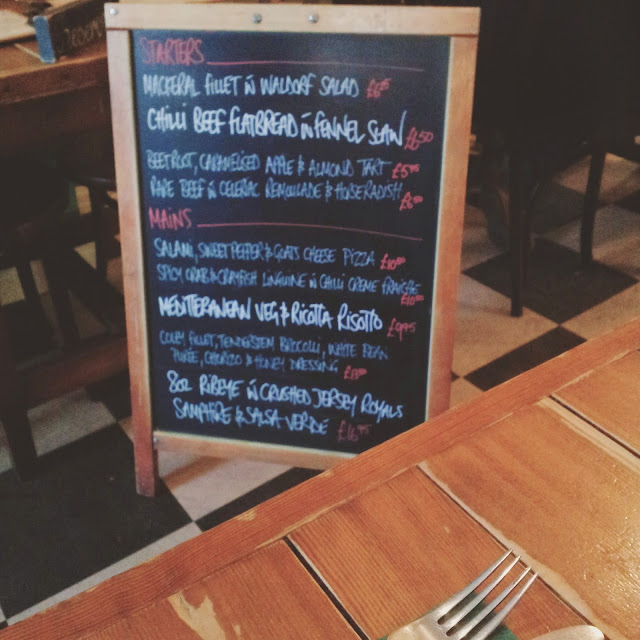 STARTERS
MACKERAL FILLET IN WALDORF SALAD
CHILLI BEEF FLATBREAD IN FENNEL SLAW £6.50
BEETROOT, CARAMELISED APPLE & ALMOND TART
RARE BEEF IN CELERIAC REMOULADE & HORSERADISH
MAINS
SALAMI, SWEET PEPPER & GOATS CHEESE PIZZA
SPICY CRAB & CRAYFISH LINGUINE IN CHILLI CREME FRAICHE
MEDITERANEAN VEG & RICOTTA RISOTTO £9.95
COLEY FILLET, TENDERSTEM BROCCOLI, WHITE BEAN
PUREE, CHORIZO & HONEY DRESSING
8OZ RIBEYE IN CRUSHED JERSEY ROYALS
SAMPHIRE & SALSA VERDE £16.95